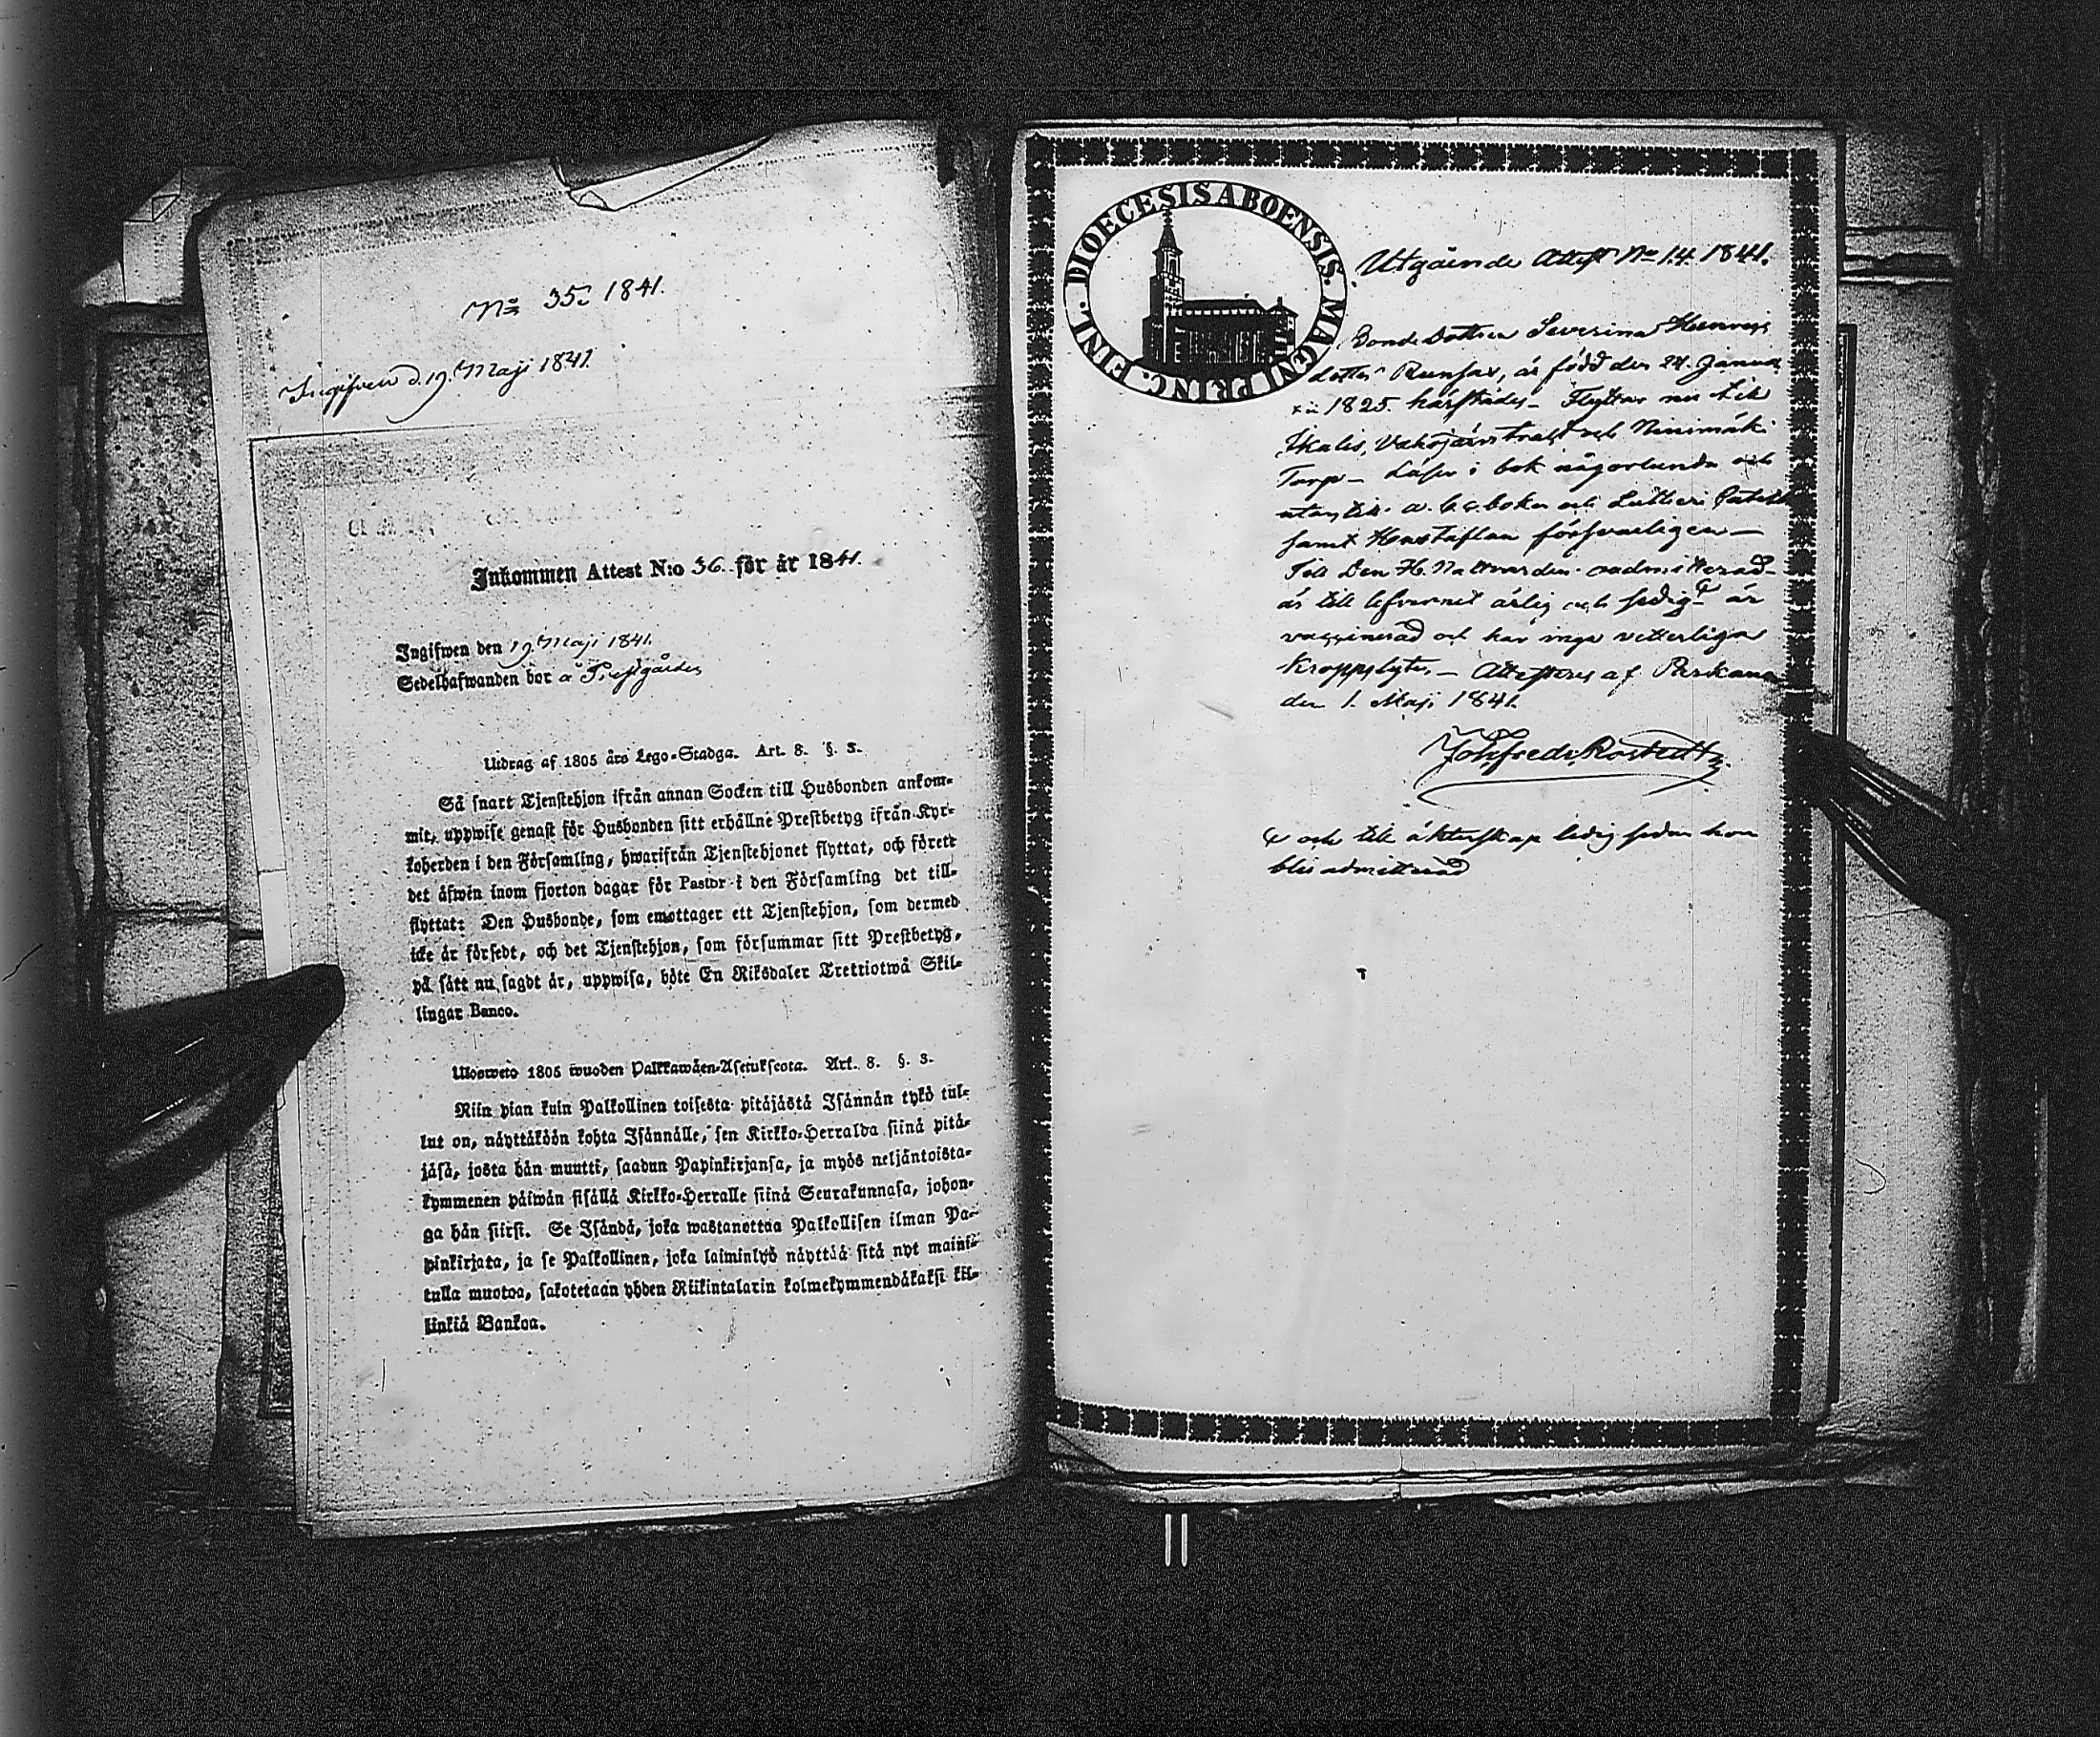 No 35. 1841.
Ingifven d. 19. Maji 1841.
Inkommen Attest N:o 36. för år 1841.
Ingifwen den 19 Maji 1841.
Sedelhafwanden bor å Prestgården
Utdrag af 1805 års Lego-Stadga. Art. 8. §. 3.
Så snart Tjenstehjon ifrån annan Socken till Husbonden ankom-
mit, uppwise genast för Husbonden sitt erhållne Prestbetyg ifrån Kyr-
koherden i den Församling, hwarifrån Tjenstehjonet flyttat, och förete
det äfwen inom fjorton dagar för Pastor i den Församling det till-
flyttat: Den Husbonde, som emottager ett Tjenstehjon, som dermed
icke är försedt, och det Tjenstehjon, som försummar sitt Prestbetyg,
på sätt nu sagdt är, uppwisa, böte En Riksdaler Trettiotwå Skil-
lingar Banco.
Ulosweto 1805 wuoden Palkkawäen-Asetuksesta. Art. 8. §. 3.
Niin pian kuin Palkollinen toisesta pitäjästä Isännän tykö tul-
lut on, näyttäköön kohta Isännälle, sen Kirkko-Herralda siinä pitä-
jäsä, josta hän muutti, saadun Papinkirjansa, ja myös neljäntoista-
kymmenen päiwän sisällä Kirkko-Herralle siinä Seurakunnasa, johon-
ga hän siirsi. Se Isändä, joka wastanottaa Palkollisen ilman Pa-
pinkirjata, ja se Palkollinen, joka laiminlyö näyttää sitä nyt maini-
tulla muotoa, sakotetaan yhden Riikintalarin kolmekymmendäkaksi kil-
linkiä Bankoa.
DIOECESIS ABOENSIS. MAGNI PRINC. FINL.
Utgående Attest No 14. 1841.
Bonde Dottren Severina Henrics
dotter Runsas, är född den 24. Janua
rii 1825. härstädes - Flyttar nu till
Ikalis, och Niinimäki
Torp - Läser i bok någorlunda och
utantill a. b. c. boken och Lutheri Cateches
samt Hustaflan försvarligen -
Till Den H. Nattvarden oadmitterad -
är till lefvernet ärlig och sedig är
vaccinerad och har inga vetterliga
Kroppslyten - Attesteras af Parkano
den 1. Maji 1841.
Joh. Fredr. Rostedt
och till äktenskap ledig sedan hon
blir admitterad